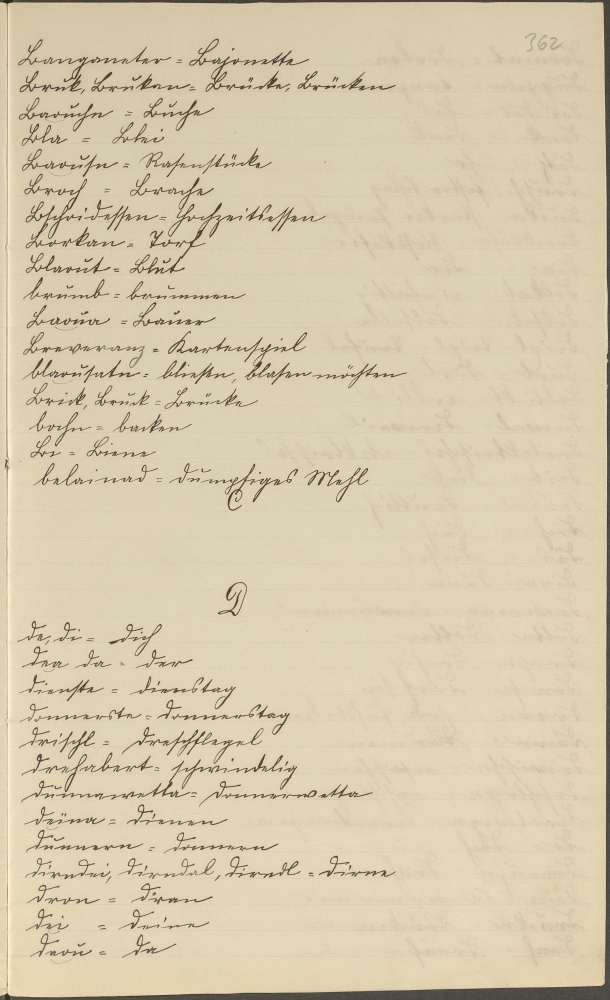 362
Banganeter = Bajonette
Bruk, Brukan = Brücke, Brücken
Baouche = Buche
Bla = Blei
Baousn = Rasenstücke
Broch = Brache
Bschoidessen = Hochzeitsessen
Borkan = Torf
Blaout = Blut
brumb = brummen
Baoua = Bauer
Breveranz = Kartenspiel
blaousatn = bliesen, blasen möchten
Brick, Bruck = Brücke
bochn = backen
Bi = Biene
belainad = dumpfiges Mehl
C
D
de, di = dich
dea da = der
dienste = dienstag
donnerste = donnerstag
drischl = dreschflegel
drehabert = schwindelig
dunnawetta = donnerwetta
deina = dienen
dunnern = donnern
dirndei, dirndal, dirndl = dirne
dron = dran
dei = deine
daou = da